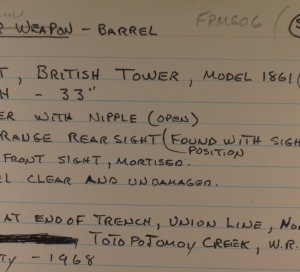 FRMS06
R WEAPON - BARREL
T, BRITISH TOWER, MODEL 1861 (
H - 33"
ER WITH NIPPLE (OPEN)
RANGE REAR SIGHT (FOUND WITH SIGH
POSITION
FRONT SIGHT, MORTISED.
EL CLEAR AND UNDAMAGED.
AT END OF TRENCH, UNION LINE, NO
TOTOPOTOMOY CREEK, W.R.
TY - 1968